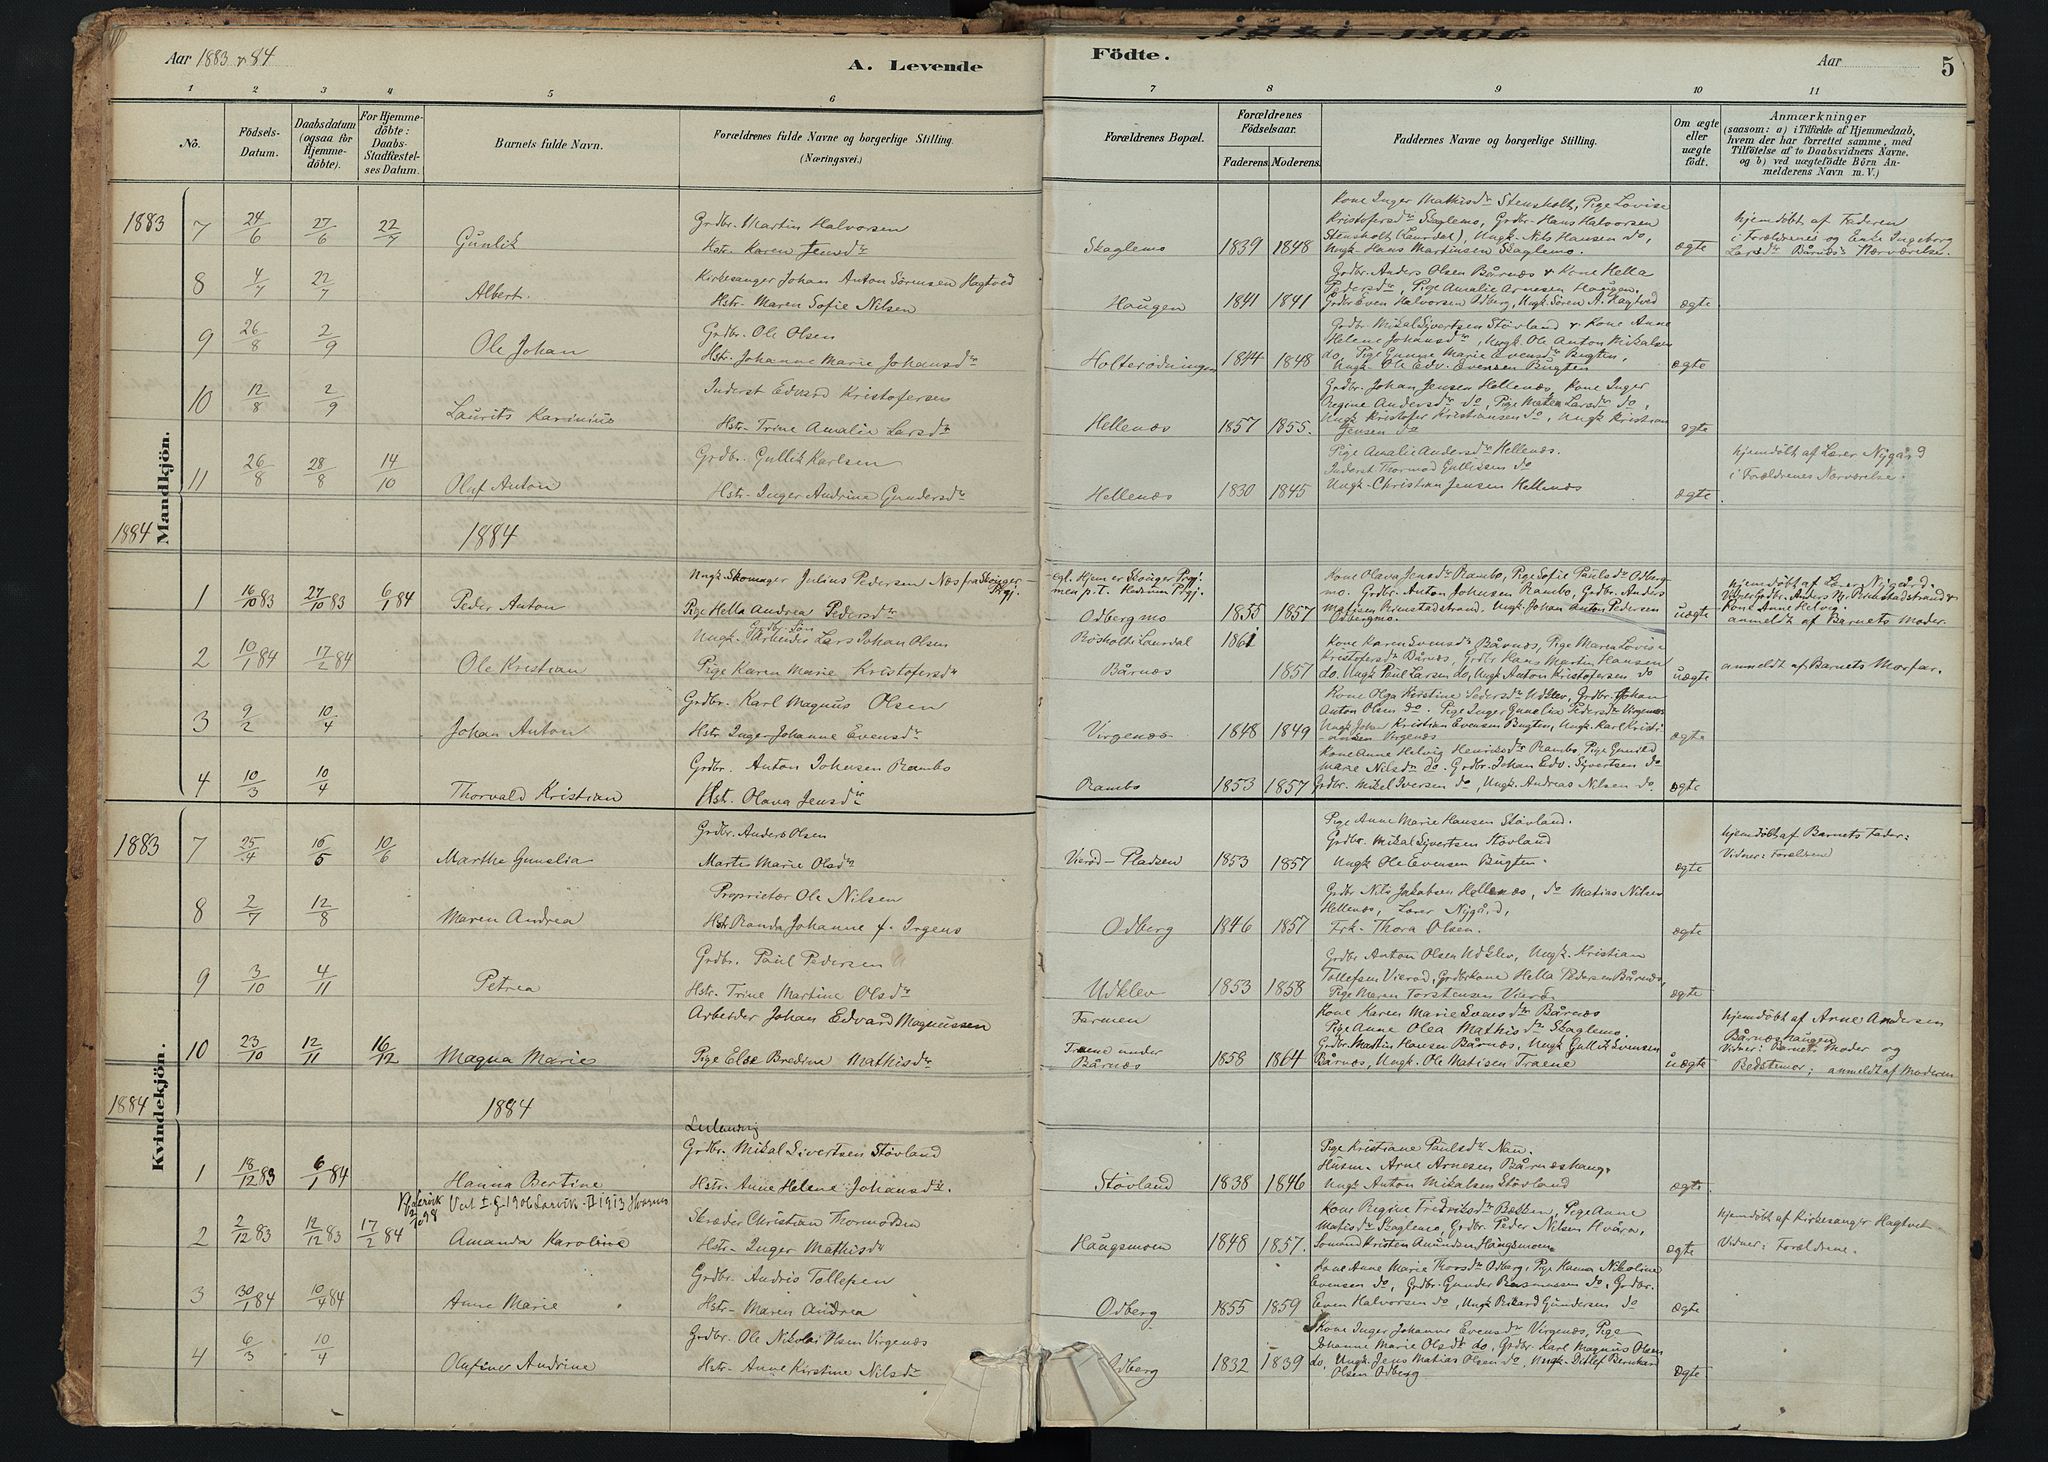 Aar 1883 & 84
A. Levende
Födte.
Aar
5
1 2 3 4 5 6 7 8 9 10 11
No.
Födsels-Datum.
Daabsdatum (ogsaa for Hjemme-döbte).
For Hjemme-döbte: Daabs-Stadfæstel-ses Datum.
Barnets fulde Navn.
Forældrenes fulde Navne og borgerlige Stilling.
(Næringsvei.)
Forældrenes Bopæl.
Forældrenes Födselsaar.
Faderens. Moderens.
Faddernes Navne og borgerlige Stilling.
Om ægte eller uægte födt.
Anmærkninger
(saasom: a) i Tilfælde af Hjemmedaab,
hvem der har forrettet samme, med
Tilföielse af to Daabsvidners Navne,
og b) ved uægtefödte Börn An-
melderens Navn m. V.)
Mandkjön.
1883
7 24/6 27/6 22/7 Gunlik
Grdbr. Martin Halvorsen
Hstr. Karen Jensdr
Skaglemo 1839 1848
Kone Inger Mathisdr Stensholt, Pige Lovise
Kristofersdr Skaglemo, Grdbr. Hans Halvorsen
Stensholt (Laurdal), Ungk. Nils Hansen do,
Ungk. Hans Martinsen Skaglemo.
ægte
hjemdöbt af Faderen
i Forældrenes og Enke Ingeborg
Larsdr Bårnæs' Nærværelse.
8 4/7 22/7 Albert.
Kirkesanger Johan Anton Sörensen Hagtved
Hstr. Maren Sofie Nilsen
Haugen 1841 1841
Grdbr. Anders Olsen Bårnæs & Kone Hella
Pedersdr, Pige Amalie Arnesen Haugen.
Grdbr Even Halvorsen Odberg, Ungk. Sören A. Hagtved
ægte.
9 26/8 2/9 Ole Johan
Grdbr. Ole Olsen
Hstr. Johanne Marie Johansdr
Holterödningen 1844 1848
Grdbr. Mikal Syvertsen Stövland & Kone Anne
Helene Johansdr, Ungk. Ole Anton Mikalsen
do, Pige Gunne Marie Evensdr Bugten,
Ungk. Ole Edv. Evensen Bugten
ægte
10 12/8 2/9 Laurits Karinius
Inderst Edvard Kristofersen
Hstr. Trine Amalie Larsdr
Hellenæs 1857 1855.
Grdbr. Johan Jensen Hellenæs, Kone Inger
Regine Andersdr do, Pige Maren Larsdr do,
Ungk. Kristofer Kristiansen do, Ungk Kristian
Jensen do
ægte
11 26/8 28/8 14/10 Olaf Anton
Grdbr. Gullik Karlsen
Hstr. Inger Andrine Gundersdr
Hellenæs 1830 1845
Pige Amalie Andersdr Hellenæs.
Inderst Thormod Gulliksen do
Ungk. Christian Jensen Hellenæs
ægte.
hjemdöbt af Lærer Nygård
i Forældrenes Nærværelse.
1884 1884
1 16/10 83 27/10 83 6/1 84 Peder Anton
Ungk. Skomager Julius Pedersen Næs fra Skouger
Prgj.
Pige Hella Andrea Pedersdr
egl. Hjem er Skouger Prgj.
men p.t. Hedrum Prgj.
Odbergmo 1835 1857
Kone Olava Jensdr Rambo, Pige Sofie Paulsdr Odberg
mo. Grdbr. Anton Johnsen Rambo, Grdbr. Anders
Matisen Rimstadstrand. Ungk. Johan Anton Pedersen
Odbergmo.
uægte
hjemdöbt af Lærer Nygård.
Vidner: Grdbr. Anders M. Rimstadstrand &
Kone Anne Helvig.
anmeldt af Barnets Moder.
2 10/1 84 17/2 84 Ole Kristian
Grdbr. Sön
Ungk. Arbeider Lars Johan Olsen
Pige Karen Marie Kristofersdr
Bösholt i Laurdal 1861
Bårnæs 1857
Kone Karen Svensdr Bårnæs, Pige Maren Lovise
Kristofersdr Bårnæs, Grdbr Hans Martin Hansen
do, Ungk. Paul Larsen do, Ungk. Anton Kristofersen do
uægte
anmeldt af Barnets Morfar.
3 9/2 10/4 Johan Anton
Grdbr. Karl Magnus Olsen
Hstr. Inger Johanne Evensdr
Virgenæs 1848 1849
Kone Olga Kerstine Pedersdr Udklev, Grdbr. Johan
Anton Olsen do. Pige Inger Gunelia Pedersdr Virgenæs
Ungk. Johan Kristian Evensen Bugten, Ungk. Karl Kristi-
ansen Virgenæs
ægte
4 10/3 10/4 Thorvald Kristian
Grdbr. Anton Johnsen Rambo
Hstr. Olava Jensdr
Rambo 1853 1857
Kone Anne Helvig Henriksdr Rambo, Pige Gunild
Marie Nilsdr do. Grdbr. Johan Edv. Syvertsen do
Grdbr. Mikel Iversen do, Ungk. Andreas Nilsen do
ægte
Kvindekjön.
1883
7 25/4 15/5 10/6 Marthe Gunelia
Grdbr. Anders Olsen
Marte Marie Olsdr
Vieröd-Pladsen 1853 1857
Pige Anne Marie Hansen Stövland.
Grdbr. Mikal Syvertsen Stövland
Ungk. Ole Evensen Bugten.
ægte
hjemdöbt af Barnets Fader:
Vidner: Forældrene
8 2/7 12/8 Maren Andrea
Proprietær Ole Nilsen
Hstr Randa Johanne f. Irgens
Odberg 1846 1857
Grdbr Nils Jakobsen Hellenæs, do Matias Nilsen
Hellenæs, Lærer Nygård,
Frk. Thora Olsen.
ægte
9 3/10 4/11 Petrea
Grdbr. Paul Pedersen
Hstr. Trine Martine Olsdr
Udklev 1853 1858
Grdbr Anton Olsen Udklev, Ungk. Kristian
Tollefsen Vieröd, Grdbrkone Hella Pedersen Bårnæs,
Pige Maren Torstensen Vieröd
ægte
10 23/10 12/11 16/12 Magna Marie
Arbeider Johan Edvard Magnussen
Pige Else Bredine Mathisdr
Farmen
Traene under
Bårnæs 1858 1864
Kone Karen Marie Svensdr Bårnæs
Pige Anne Olea Mathisdr Skaglemo.
Grdbr. Martin Hansen Bårnæs, Ungk. Gullik Svensen
Bårnæs, Ungk. Ole Matisen Traene
uægte
hjemdöbt af Arne Andersen
Bårnæshaugen
Vidner: Barnets Moder og
Bedstemor; anmeldt af Moderen
1884 1884
1 18/12 83 6/1 84 Hanna Bertine
Grdbr. Mikal Sivertsen Stövland
Hstr. Anne Helene Johansdr.
Stövland 1838 1846
Pige Kristiane Paulsdr Nau.
Husm. Arne Arnesen Bårnæshaug.
Ungk. Anton Mikalsen Stövland
ægte.
Vul I G. 1906 Larvik - II 1913
2 2/12 83 12/12 83 17/2 84 Amanda Karoline
Skræder Christian Thormodsen
Hstr. Inger Mathisdr
Haugsmoen 1848 1857.
Kone Regine Fredriksdr Bakken, Pige Anne
Matisdr Skaglemo, Grdbr. Peder Nilsen Hvåra,
Sömand Kristen Amundsen Haugsmoen.
ægte
hjemdöbt af Kirkesanger Hagtvet.
Vidner: Forældrene.
3 30/1 84 10/4 84 Anne Marie
Grdbr. Andris Tollefsen
Hstr. Maren Andrea
Odberg 1855 1859
Kone Anne Marie Thorsdr Odberg, Pige Hanna Nikoline
Evensen do, Grdbr. Gunder Rasmussen do, Grdbr.
Even Halvorsen do, Ungk Rikard Gundersen do
ægte
4 6/3 10/4 Olufine Andrine
Grdbr. Ole Nikolai Olsen Virgenæs
Hstr. Anne Kirstine Nilsdr
Odberg 1832 1839
Kone Inger Johanne Evensdr Virgenæs, Pige
Johanne Marie Olsdt do, Grdbr. Karl Magnus Olsen
do, Ungk. Jens Matias Olsen do, Ungk. Ditlef Bernhard
Olsen Odberg
ægte